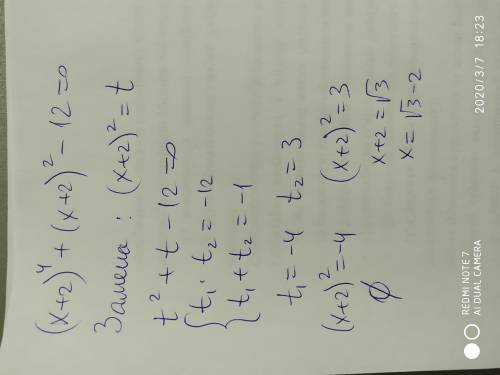 (x+2)⁴ + (x+2)² - 12 = 0
Замена : (x+2)² = t
t² + t - 12 = 0
{ t₁ · t₂ = -12
t₁ + t₂ = -1
t₁ = -4 t₂ = 3
(x+2)² = -4 (x+2)² = 3
∅ x+2 = √3
x = √3 - 2
REDMI NOTE 7
AI DUAL CAMERA
2020/3/7 18:23